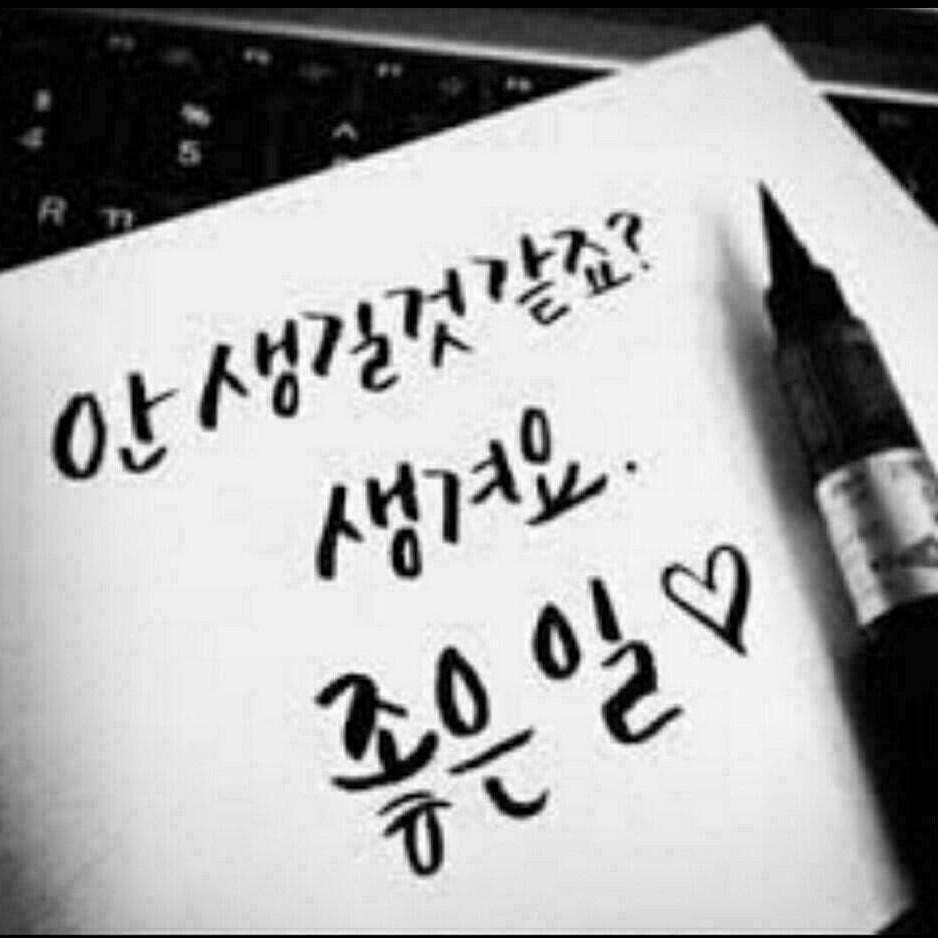 % ^
4 5
R ㄲ
안 생길것 같죠?
생겨요.
좋은 일♡